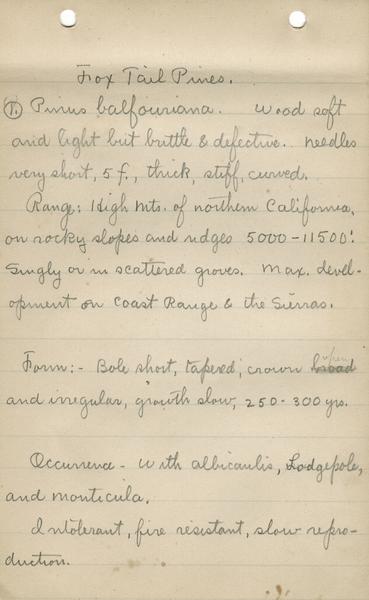 Fox Tail Pines.
1. Pinus balfouriana. Wood soft
and light but brittle & defective. Needles
very short, 5 f., thick, stiff, curved.
Range: High Mts. of northern California,
on rocky slopes and ridges 5000-11500'.
Singly or in scattered groves. Max. devel-
opment on Coast Range & the Sierras.
Form:- Bole short, tapered; crown open
and irregular, growth slow, 250-300 yrs.
Occurrence - With albicaulis, Lodgepole,
and monticola.
Intolerant, fire resistant, slow repro-
duction.